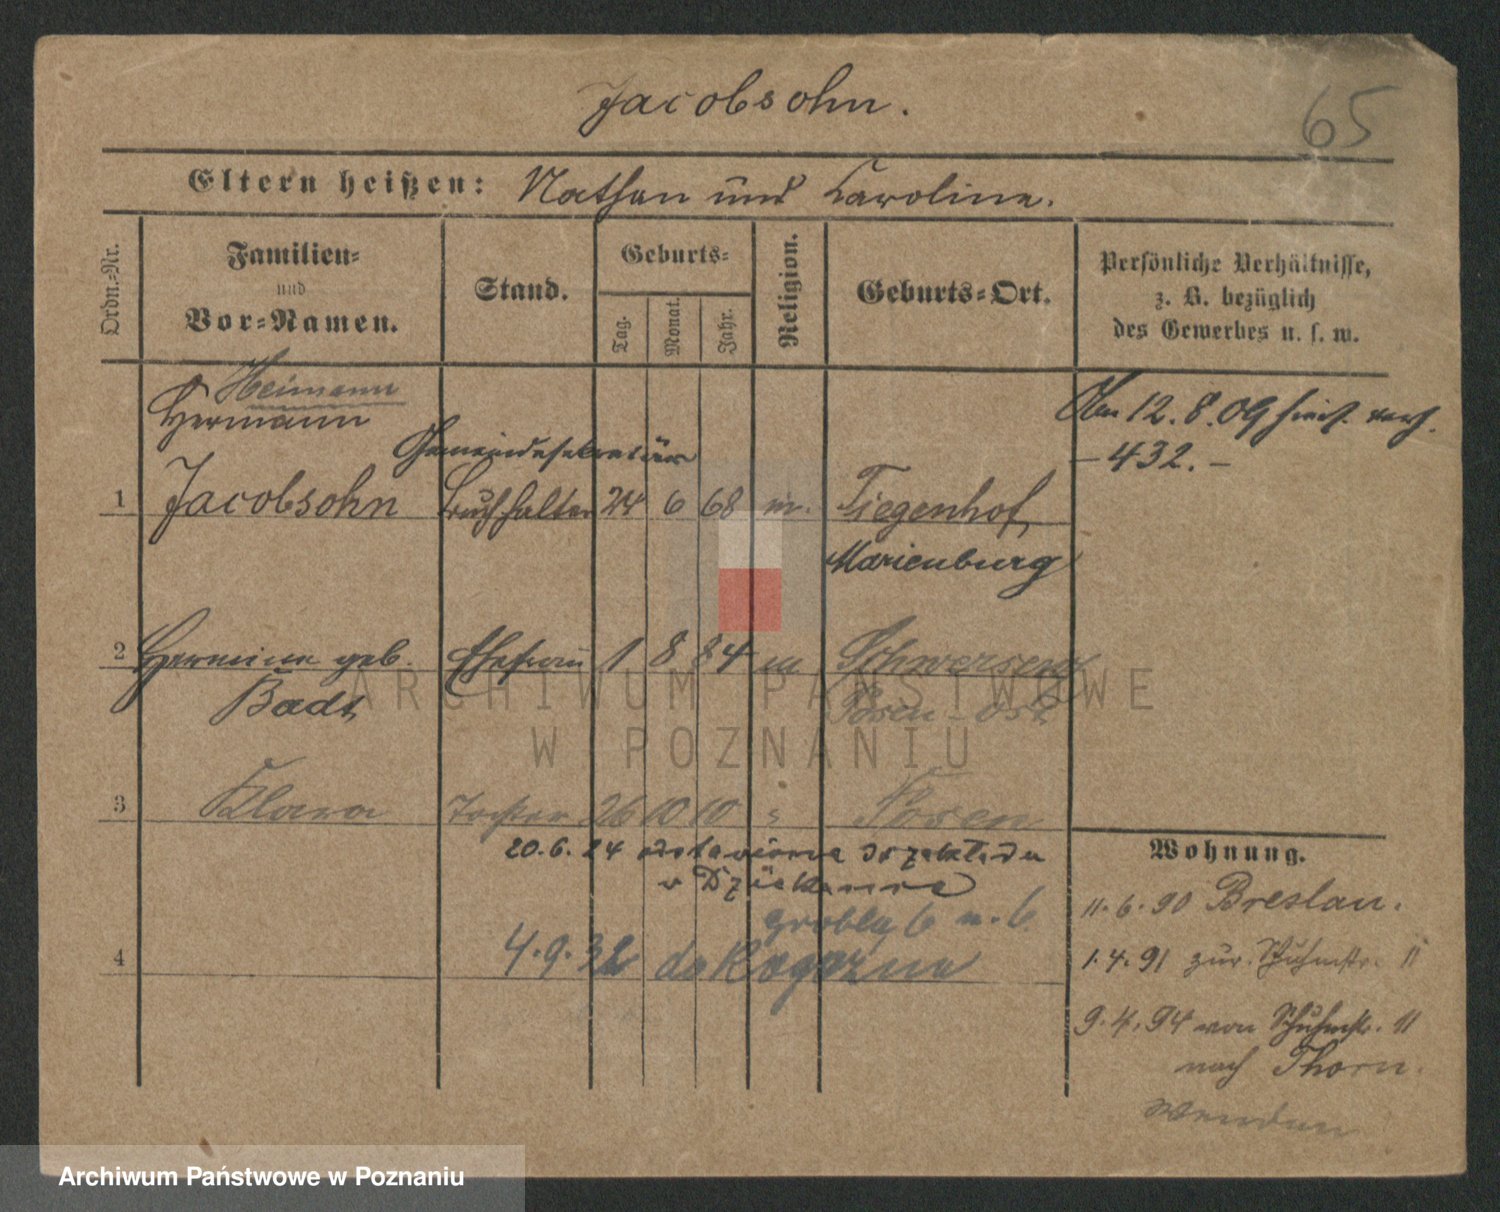 Jacobsohn.
65
Eltern heißen: Nathan und Caroline.
Ordn.-Nr.
Familien-
und
Vor-Namen.
Stand.
Geburts-
Tag.
Monat.
Jahr.
Religion.
Geburts-Ort.
Persönliche Verhältnisse,
z. B. bezüglich
des Gewerbes u. s. w.
Heimann
Hermann
Gemeindesekretär
1 Jacobsohn Buchhalter 24 6 68 m. Tiegenhof
Marienburg
Am 12.8.09 verh.
- 432. -
2 Hermine geb. Ehefrau 1 8 84 m Schwersenz
Badt Posen-Ost
3 Klara Tochter 26 10 10 " Posen
20.6.24
Grobla 6 m. 6
4 4.9.32 do Rogozna
Wohnung.
11.6.90 Breslau.
1.4.91 zur. Schuhmstr. 11
9.4.94 von Schuhmstr. 11
nach Thorn.
Wenden
ARCHIWUM PAŃSTWOWE
W POZNANIU
Archiwum Państwowe w Poznaniu